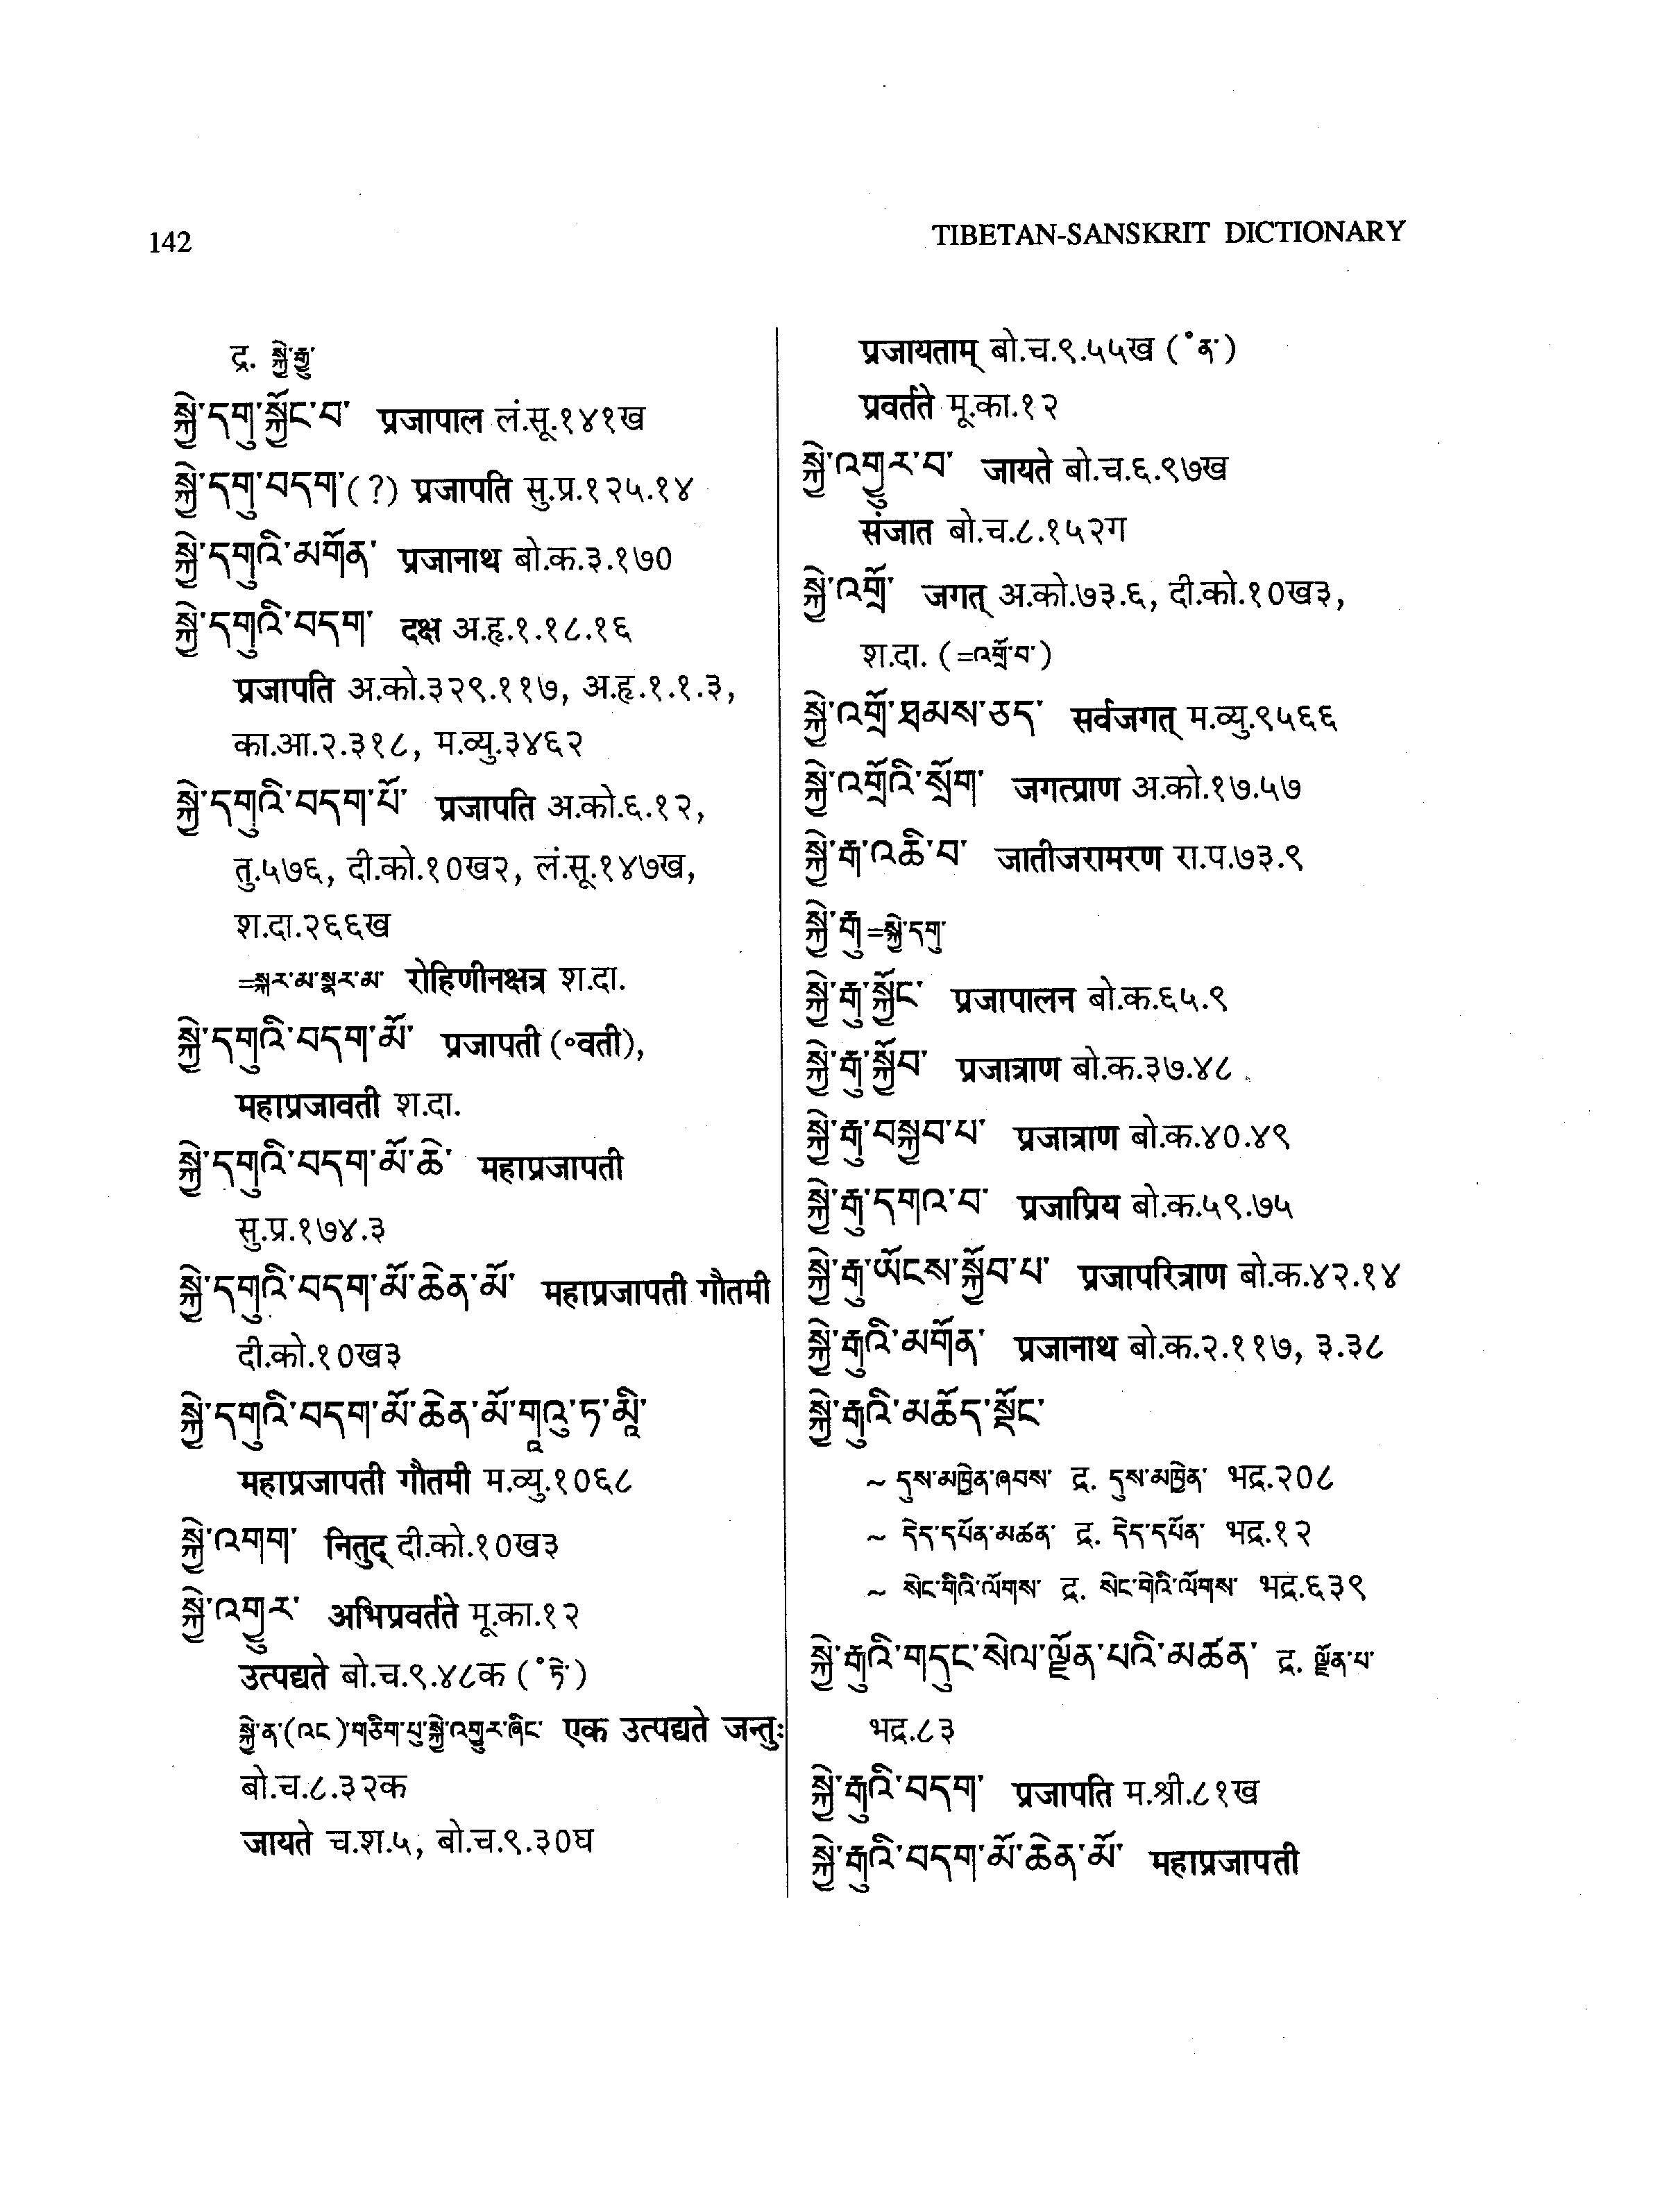 142
TIBETAN-SANSKRIT DICTIONARY
द्र. སྐྱེ་རྒུ་
སྐྱེ་དགུ་སྐྱོང་བ་ प्रजापाल लं.सू.१४१ख
སྐྱེ་དགུ་བདག་(?) प्रजापति सु.प्र.१२५.१४
སྐྱེ་དགུའི་མགོན་ प्रजानाथ बो.क.३.१७०
སྐྱེ་དགུའི་བདག་ दक्ष अ.हृ.१.१८.१६
प्रजापति अ.को.३२९.११७, अ.हृ.१.१.३,
का.आ.२.३१८, म.व्यु.३४६२
སྐྱེ་དགུའི་བདག་པོ་ प्रजापति अ.को.६.१२,
तु.५७६, दी.को.१०ख२, लं.सू.१४७ख,
श.दा.२६६ख
=སྐར་མ་སྣར་མ་ रोहिणीनक्षत्र श.दा.
སྐྱེ་དགུའི་བདག་མོ་ प्रजापती (॰वती),
महाप्रजावती श.दा.
སྐྱེ་དགུའི་བདག་མོ་ཆེ་ महाप्रजापती
सु.प्र.१७४.३
སྐྱེ་དགུའི་བདག་མོ་ཆེན་མོ་ महाप्रजापती गौतमी
दी.को.१०ख३
སྐྱེ་དགུའི་བདག་མོ་ཆེན་མོ་གཱའུ་ཏ་མཱི་
महाप्रजापती गौतमी म.व्यु.१०६८
སྐྱེ་འགག་ नितुद् दी.को.१०ख३
སྐྱེ་འགྱུར་ अभिप्रवर्तते मू.का.१२
उत्पद्यते बो.च.९.४८क (˚ཏེ་)
སྐྱེ་ན་(འང་)་གཅིག་པུ་སྐྱེ་འགྱུར་ཞིང་ एक उत्पद्यते जन्तुः
बो.च.८.३२क
जायते च.श.५, बो.च.९.३०घ
प्रजायताम् बो.च.९.५५ख (˚ན་)
प्रवर्तते मू.का.१२
སྐྱེ་འགྱུར་བ་ जायते बो.च.६.९७ख
संजात बो.च.८.१५२ग
སྐྱེ་འགྲོ་ जगत् अ.को.७३.६, दी.को.१०ख३,
श.दा. (=འགྲོ་བ་)
སྐྱེ་འགྲོ་ཐམས་ཅད་ सर्वजगत् म.व्यु.९५६६
སྐྱེ་འགྲོའི་སྲོག་ जगत्प्राण अ.को.१७.५७
སྐྱེ་རྒ་འཆི་བ་ जातीजरामरण रा.प.७३.९
སྐྱེ་རྒུ་=སྐྱེ་དགུ་
སྐྱེ་རྒུ་སྐྱོང་ प्रजापालन बो.क.६५.९
སྐྱེ་རྒུ་སྐྱོབ་ प्रजात्राण बो.क.३७.४८
སྐྱེ་རྒུ་བསྐྱབ་པ་ प्रजात्राण बो.क.४०.४९
སྐྱེ་རྒུ་དགའ་བ་ प्रजाप्रिय बो.क.५९.७५
སྐྱེ་རྒུ་ཡོངས་སྐྱོབ་པ་ प्रजापरित्राण बो.क.४२.१४
སྐྱེ་རྒུའི་མགོན་ प्रजानाथ बो.क.२.११७, ३.३८
སྐྱེ་རྒུའི་མཆོད་སྡོང་
~ དུས་མཁྱེན་ཞབས་ द्र. དུས་མཁྱེན་ भद्र.२०८
~ དེད་དཔོན་མཚན་ द्र. དེད་དཔོན་ भद्र.१२
~ སེང་གེའི་ལོགས་ द्र. སེང་གེའི་ལོགས་ भद्र.६३९
སྐྱེ་རྒུའི་གདུང་སེལ་ལྗོན་པའི་མཚན་ द्र. ལྗོན་པ་
भद्र.८३
སྐྱེ་རྒུའི་བདག་ प्रजापति म.श्री.८१ख
སྐྱེ་རྒུའི་བདག་མོ་ཆེན་མོ་ महाप्रजापती